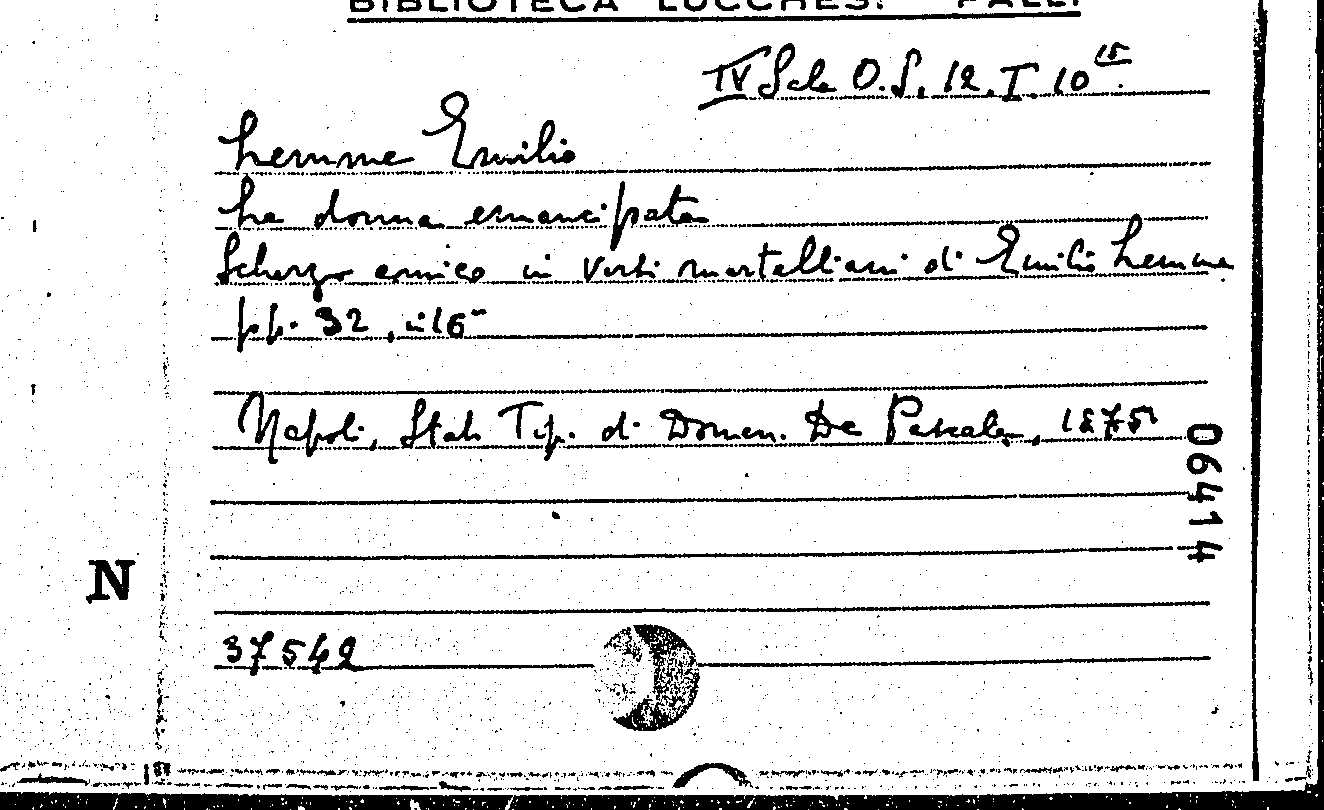 BIBLIOTECA LUCCHESI PALLI
IV Sala O.S. 12. I. 10 15.
Lemme Emilio
La donna emancipata
Scherzo comico in versi martelliani di Emilio Lemme
pp. 32, in 16°
Napoli, Stab. Tip. di Domen. De Pascale, 1875
06414
N
37542